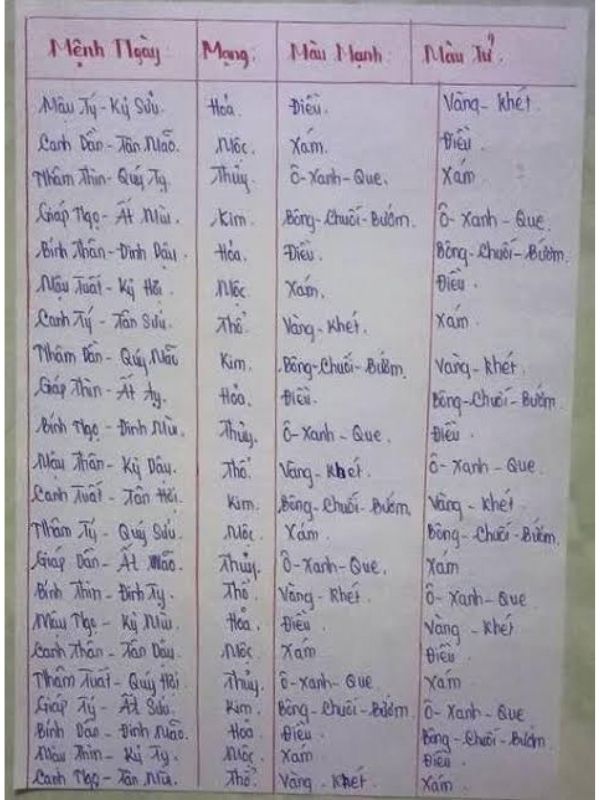 Mệnh Ngày Mạng Màu Mạnh Màu Tử.
Mậu Tý - Kỷ Sửu. Hỏa. Điều. Vàng - Khét.
Canh Dần - Tân Mão. Mộc. Xám. Điều.
Nhâm Thìn - Quý Tỵ. Thủy. Ô - Xanh - Que. Xám.
Giáp Ngọ - Ất Mùi. Kim. Bông - Chuối - Bướm. Ô - Xanh - Que.
Bính Thân - Đinh Dậu. Hỏa. Điều. Bông - Chuối - Bướm.
Mậu Tuất - Kỷ Hợi. Mộc. Xám. Điều.
Canh Tý - Tân Sửu. Thổ. Vàng - Khét. Xám.
Nhâm Dần - Quý Mão Kim. Bông - Chuối - Bướm. Vàng - Khét.
Giáp Thìn - Ất Tỵ. Hỏa. Điều. Bông - Chuối - Bướm.
Bính Ngọ - Đinh Mùi. Thủy. Ô - Xanh - Que Điều.
Mậu Thân - Kỷ Dậu. Thổ. Vàng - Khét. Ô - Xanh - Que.
Canh Tuất - Tân Hợi. Kim. Bông - Chuối - Bướm. Vàng - Khét.
Nhâm Tý - Quý Sửu. Mộc. Xám. Bông - Chuối - Bướm.
Giáp Dần - Ất Mão. Thủy. Ô - Xanh - Que. Xám
Bính Thìn - Đinh Tỵ. Thổ. Vàng - Khét. Ô - Xanh - Que
Mậu Ngọ - Kỷ Mùi. Hỏa. Điều. Vàng - Khét
Canh Thân - Tân Dậu. Mộc. Xám Điều.
Nhâm Tuất - Quý Hợi Thủy. Ô - Xanh - Que. Xám
Giáp Tý - Ất Sửu. Kim. Bông - Chuối - Bướm. Ô - Xanh - Que
Bính Dần - Đinh Mão. Hỏa Điều. Bông - Chuối - Bướm
Mậu Thìn - Kỷ Tỵ. Mộc. Xám Điều.
Canh Ngọ - Tân Mùi. Thổ. Vàng - Khét Xám.